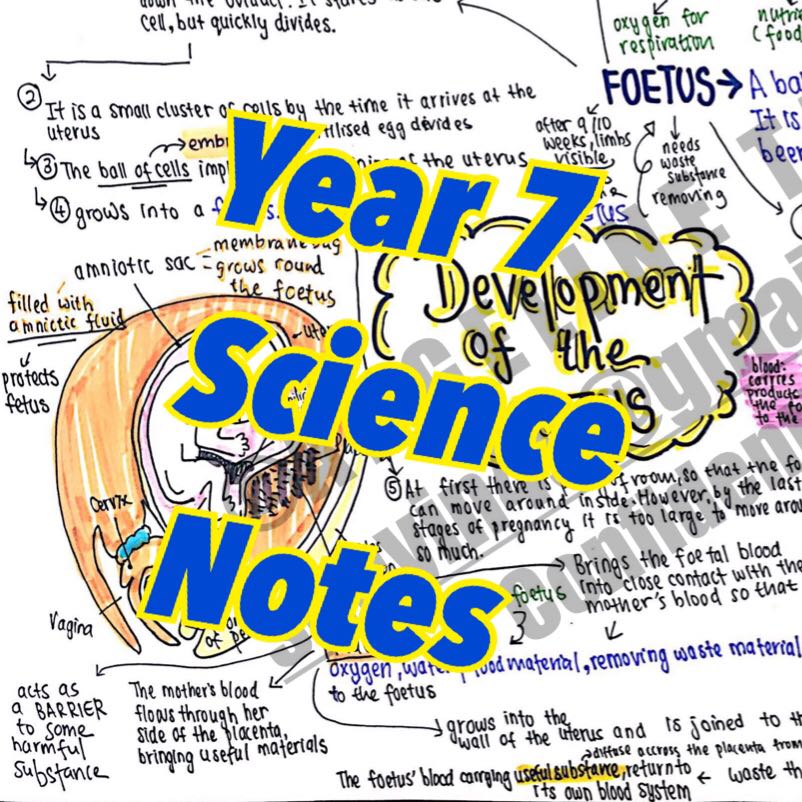 cell, but quickly divides.
② It is a small cluster of cells by the time it arrives at the
uterus
egg divides
③ The ball of cells
the uterus
④ grows into a
amniotic sac =
membrane bag
grows round
the foetus
filled with
amnictic fluid
protects
fetus
Cervix
Vagina
oxygen for
respiration
FOETUS → A
It is
been
after 9/10
weeks, limbs
visible
needs
waste
substance
removing
Year 7
Science
Notes
Development
of the
blood:
carries
products
the
to the
⑤ At first there is room, so that the
can move around inside. However, by the last
stages of pregnancy it is too large to move
so much.
Brings the foetal blood
into close contact with the
mother's blood so that
foetus
oxygen, food material, removing waste material
to the foetus
acts as
a BARRIER
to some
harmful
substance
The mother's blood
flows through her
side of the placenta,
bringing useful materials
grows into the
wall of the uterus and is joined to
diffuse accross the placenta from
The foetus' blood carrying useful substance, return to
its own blood system
← waste
@gmai
confident